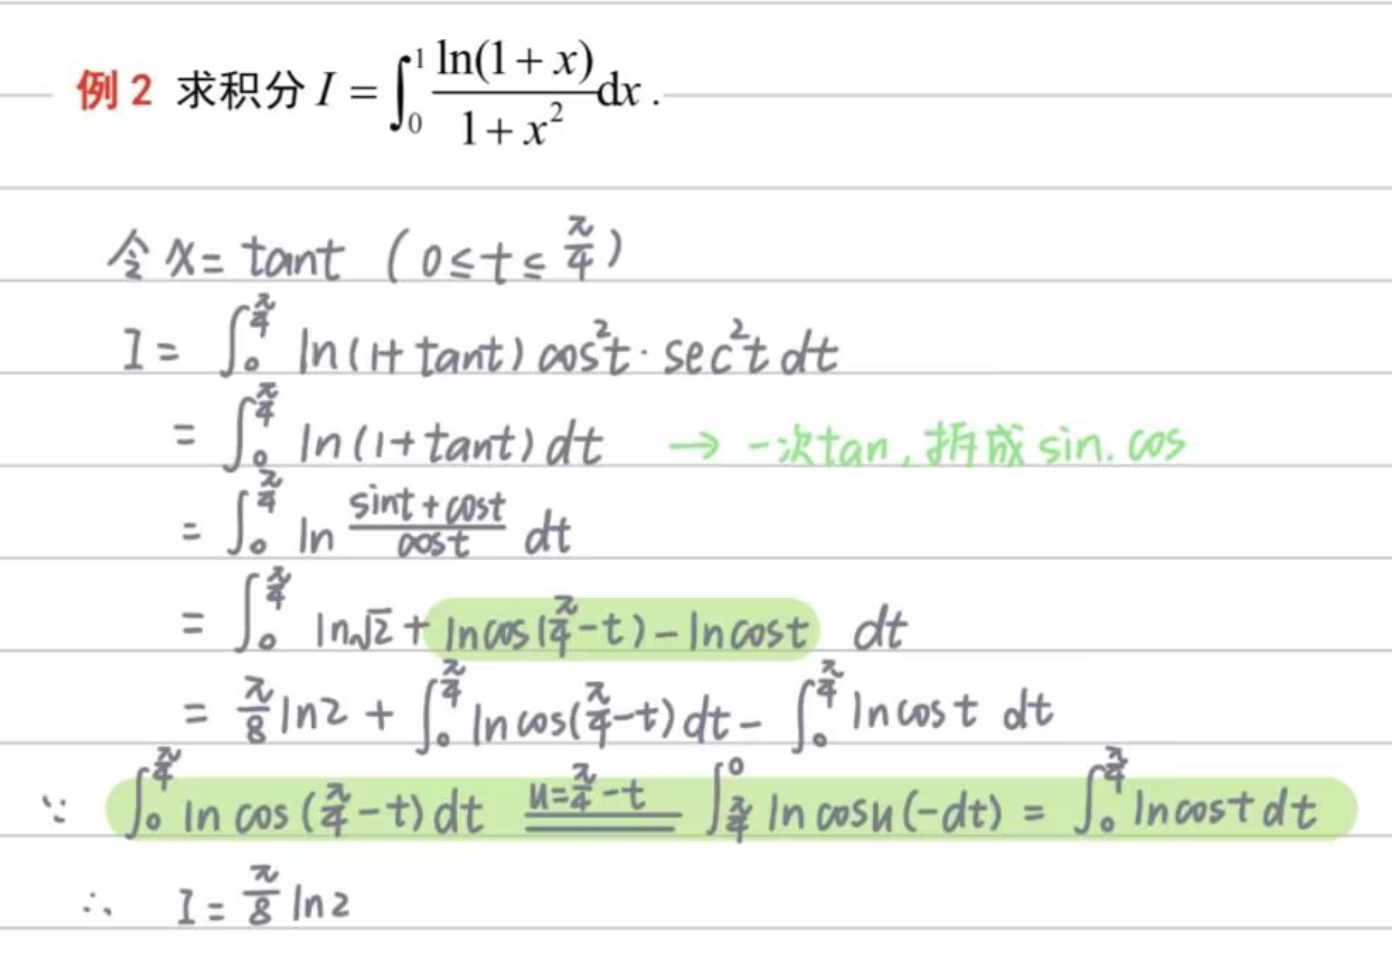 例 2 求积分 I = ∫₀¹ ln(1+x)/(1+x²) dx .
令 x = tant (0≤t≤π/4)
I = ∫₀^(π/4) ln(1+tant) cos²t · sec²t dt
= ∫₀^(π/4) ln(1+tant) dt → 一次tan, 拆成 sin. cos
= ∫₀^(π/4) ln (sint+cost)/cost dt
= ∫₀^(π/4) ln√2 + lncos(π/4-t) - lncost dt
= π/8 ln2 + ∫₀^(π/4) lncos(π/4-t) dt - ∫₀^(π/4) lncost dt
∵ ∫₀^(π/4) ln cos(π/4-t) dt (u=π/4-t)== ∫_(π/4)^0 ln cosu(-dt) = ∫₀^(π/4) lncost dt
∴ I = π/8 ln2